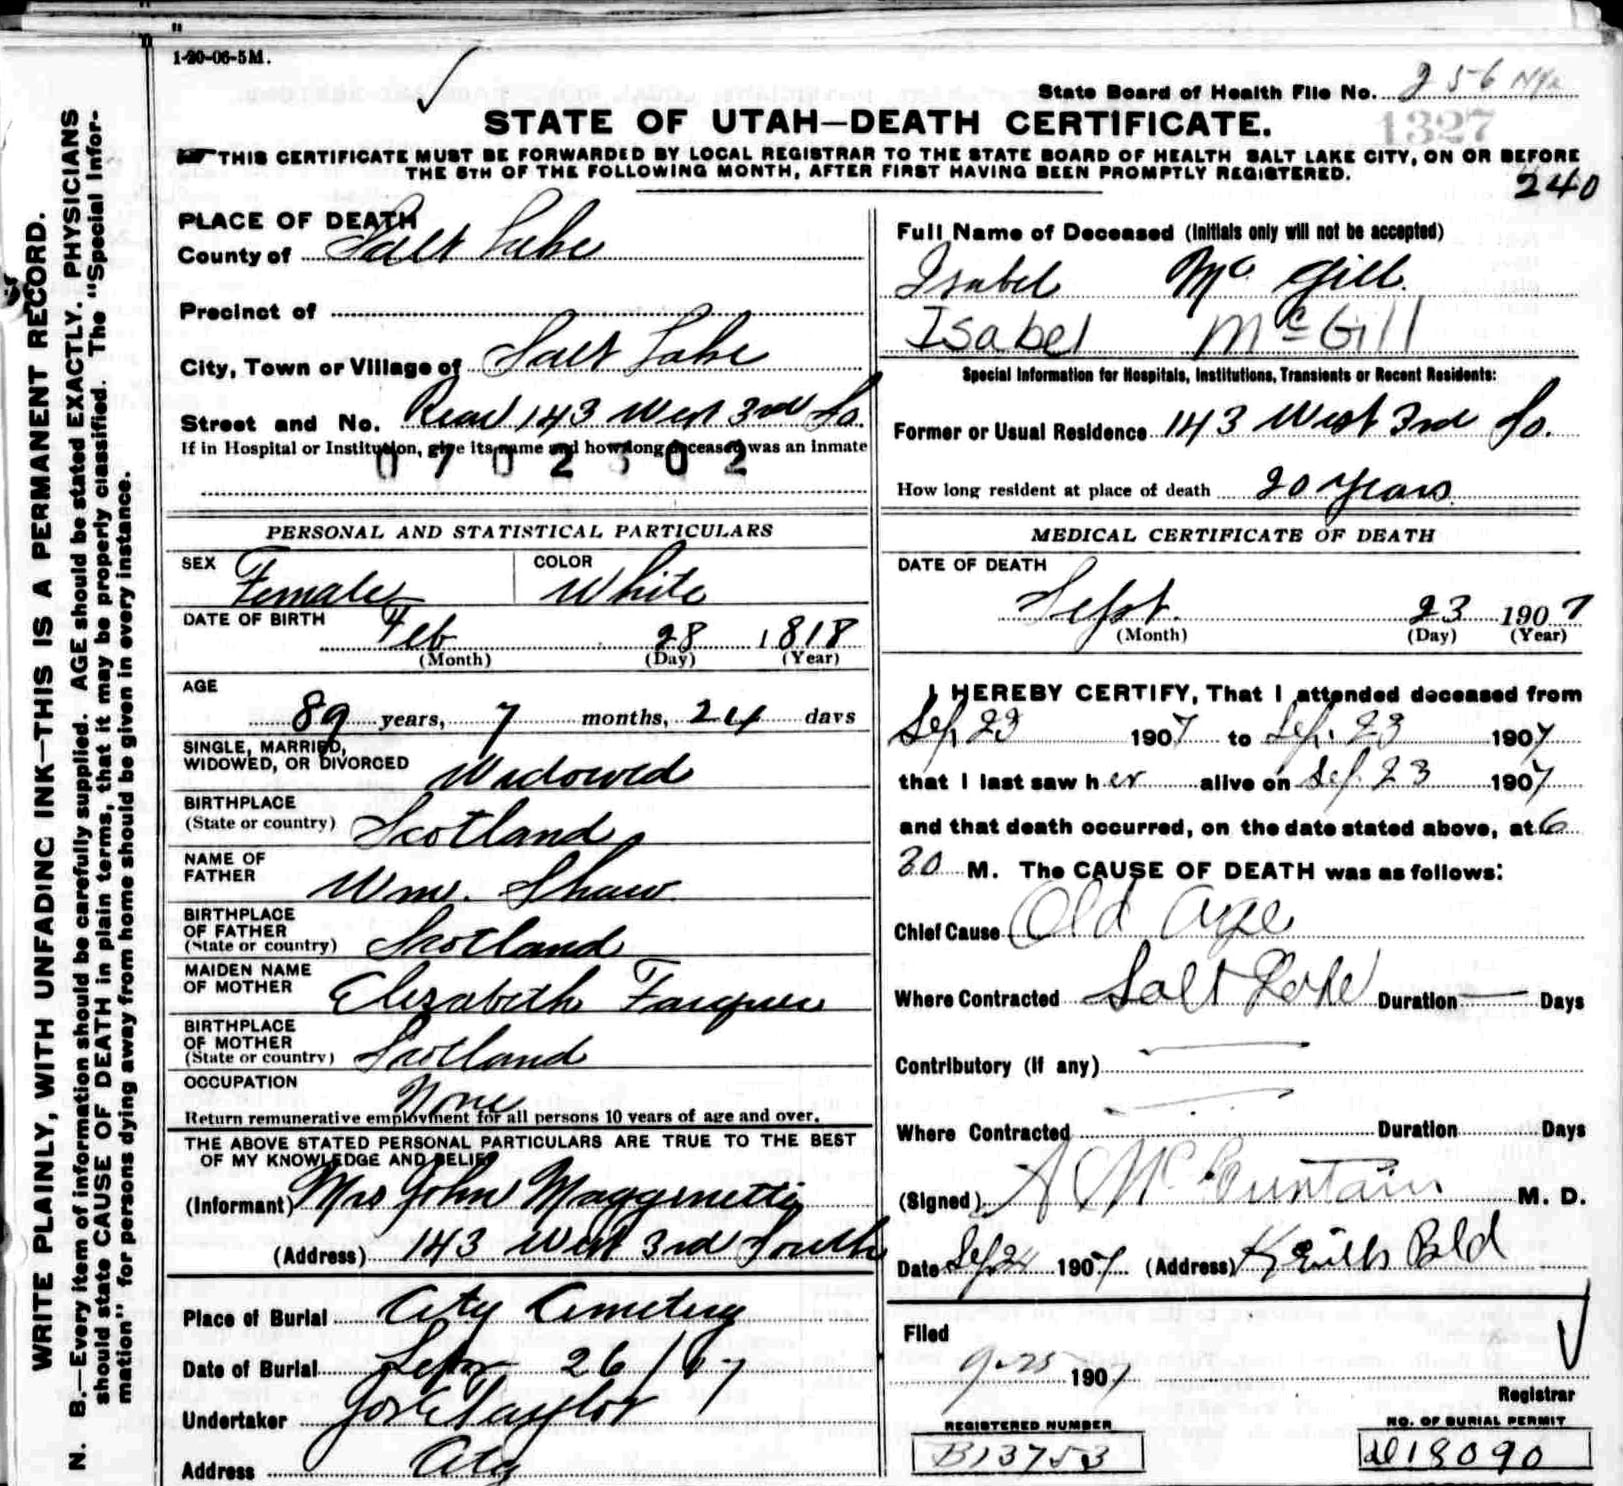 1-20-06-5M.
State Board of Health File No. 256
1327
STATE OF UTAH—DEATH CERTIFICATE.
THIS CERTIFICATE MUST BE FORWARDED BY LOCAL REGISTRAR TO THE STATE BOARD OF HEALTH SALT LAKE CITY, ON OR BEFORE
THE 5TH OF THE FOLLOWING MONTH, AFTER FIRST HAVING BEEN PROMPTLY REGISTERED.
240
WRITE PLAINLY, WITH UNFADING INK—THIS IS A PERMANENT RECORD.
N. B.—Every item of information should be carefully supplied. AGE should be stated EXACTLY. PHYSICIANS
should state CAUSE OF DEATH in plain terms, that it may be properly classified. The "Special Infor-
mation" for persons dying away from home should be given in every instance.
PLACE OF DEATH
County of Salt Lake
Precinct of
City, Town or Village of Salt Lake
Street and No. Rear 143 West 3rd So.
If in Hospital or Institution, give its name and how long deceased was an inmate
0702302
PERSONAL AND STATISTICAL PARTICULARS
SEX Female COLOR White
DATE OF BIRTH Feb 28 1818
(Month) (Day) (Year)
AGE
89 years, 7 months, 24 days
SINGLE, MARRIED,
WIDOWED, OR DIVORCED Widowed
BIRTHPLACE
(State or country) Scotland
NAME OF
FATHER Wm. Shaw
BIRTHPLACE
OF FATHER
(State or country) Scotland
MAIDEN NAME
OF MOTHER Elizabeth
BIRTHPLACE
OF MOTHER
(State or country) Scotland
OCCUPATION None
Return remunerative employment for all persons 10 years of age and over.
THE ABOVE STATED PERSONAL PARTICULARS ARE TRUE TO THE BEST
OF MY KNOWLEDGE AND BELIEF
(Informant) Mrs John Magginetti
(Address) 143 West 3rd South
Place of Burial City Cemetery
Date of Burial Sept 26/07
Undertaker Jos E Taylor
Address City
Full Name of Deceased (Initials only will not be accepted)
Isabel Mc Gill
Isabel McGill
Special Information for Hospitals, Institutions, Transients or Recent Residents:
Former or Usual Residence 143 West 3rd So.
How long resident at place of death 20 Years
MEDICAL CERTIFICATE OF DEATH
DATE OF DEATH
Sept. 23 1907
(Month) (Day) (Year)
I HEREBY CERTIFY, That I attended deceased from
Sep. 23 1907 to Sep. 23 1907
that I last saw her alive on Sep. 23 1907
and that death occurred, on the date stated above, at 6
30 M. The CAUSE OF DEATH was as follows:
Chief Cause Old Age
Where Contracted Salt Lake Duration — Days
Contributory (If any)
Where Contracted Duration Days
(Signed) M. D.
Date Sep. 24 1907 (Address) Keith Bld
Filed
9-25 1907
Registrar
REGISTERED NUMBER
B13753
NO. OF BURIAL PERMIT
D18090